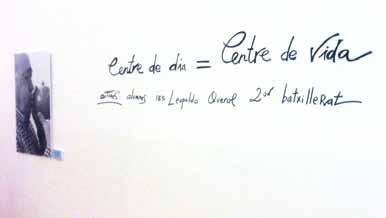 Centre de dia = Centre de Vida
alumnes IES Leopoldo Querol 2on batxillerat